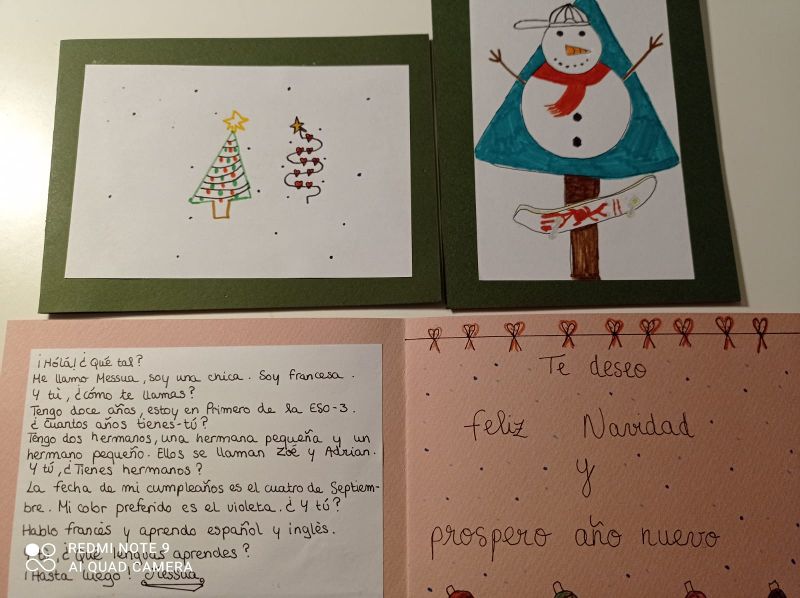 ¡Hólá! ¿Qué tal?
Me llamo Messua, soy una chica. Soy francesa.
Y tú, ¿cómo te llamas?
Tengo doce años, estoy en Primero de la ESO-3.
¿Cuantos años tienes-tú?
Tengo dos hermanos, una hermana pequeña y un
hermano pequeño. Ellos se llaman Zoé y Adrian.
Y tú, ¿Tienes hermanos?
La fecha de mi cumpleaños es el cuatro de Septiem-
bre. Mi color preferido es el violeta. ¿Y tú?
Hablo francés y aprendo español y inglés.
¿Qué lenguas aprendes?
¡Hasta luego! Messua
Te deseo
feliz Navidad
y
prospero año nuevo
REDMI NOTE 9
AI QUAD CAMERA